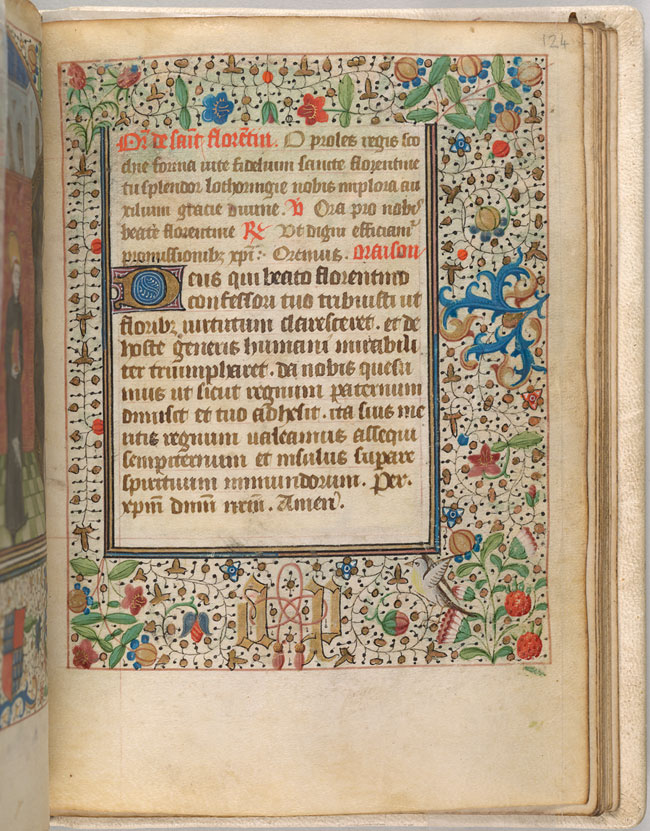 124
Or̃ de sait̃ florẽtin. O proles regis sco
chie forma vite fidelium sancte florentine
tu splendor lothoringie nobis implora au
xilium gracie divine. V Ora pro nobis
beate florentine R Ut digni efficiam̃
promissionibꝫ xp̃i: Oremus. Oraison
Deus qui beato florentino
confessori tuo tribuisti ut
floribꝫ virtutum claresceret. et de
hoste generis humani mirabili
ter triumpharet. da nobis quesu
mus ut sicut regnum paternum
dimisit et tuo adhesit. ita suis me
ritis regnum valeamus assequi
sempiternum et insulus supare
spirituum inmundorum. Per.
xp̃m dñm nr̃m. Amen.